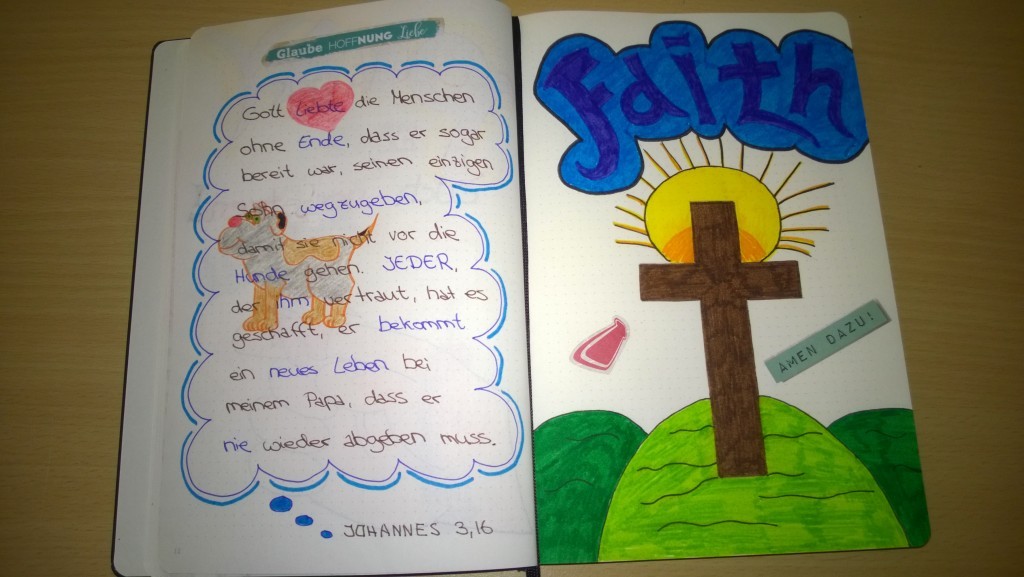 Glaube HOFFNUNG Liebe
Gott liebte die Menschen
ohne Ende, dass er sogar
bereit war, seinen einzigen
Sohn wegzugeben,
damit sie nicht vor die
Hunde gehen. JEDER,
der ihm vertraut, hat es
geschafft, er bekommt
ein neues Leben bei
meinem Papa, dass er
nie wieder abgeben muss.
JOHANNES 3,16
Faith
AMEN DAZU!